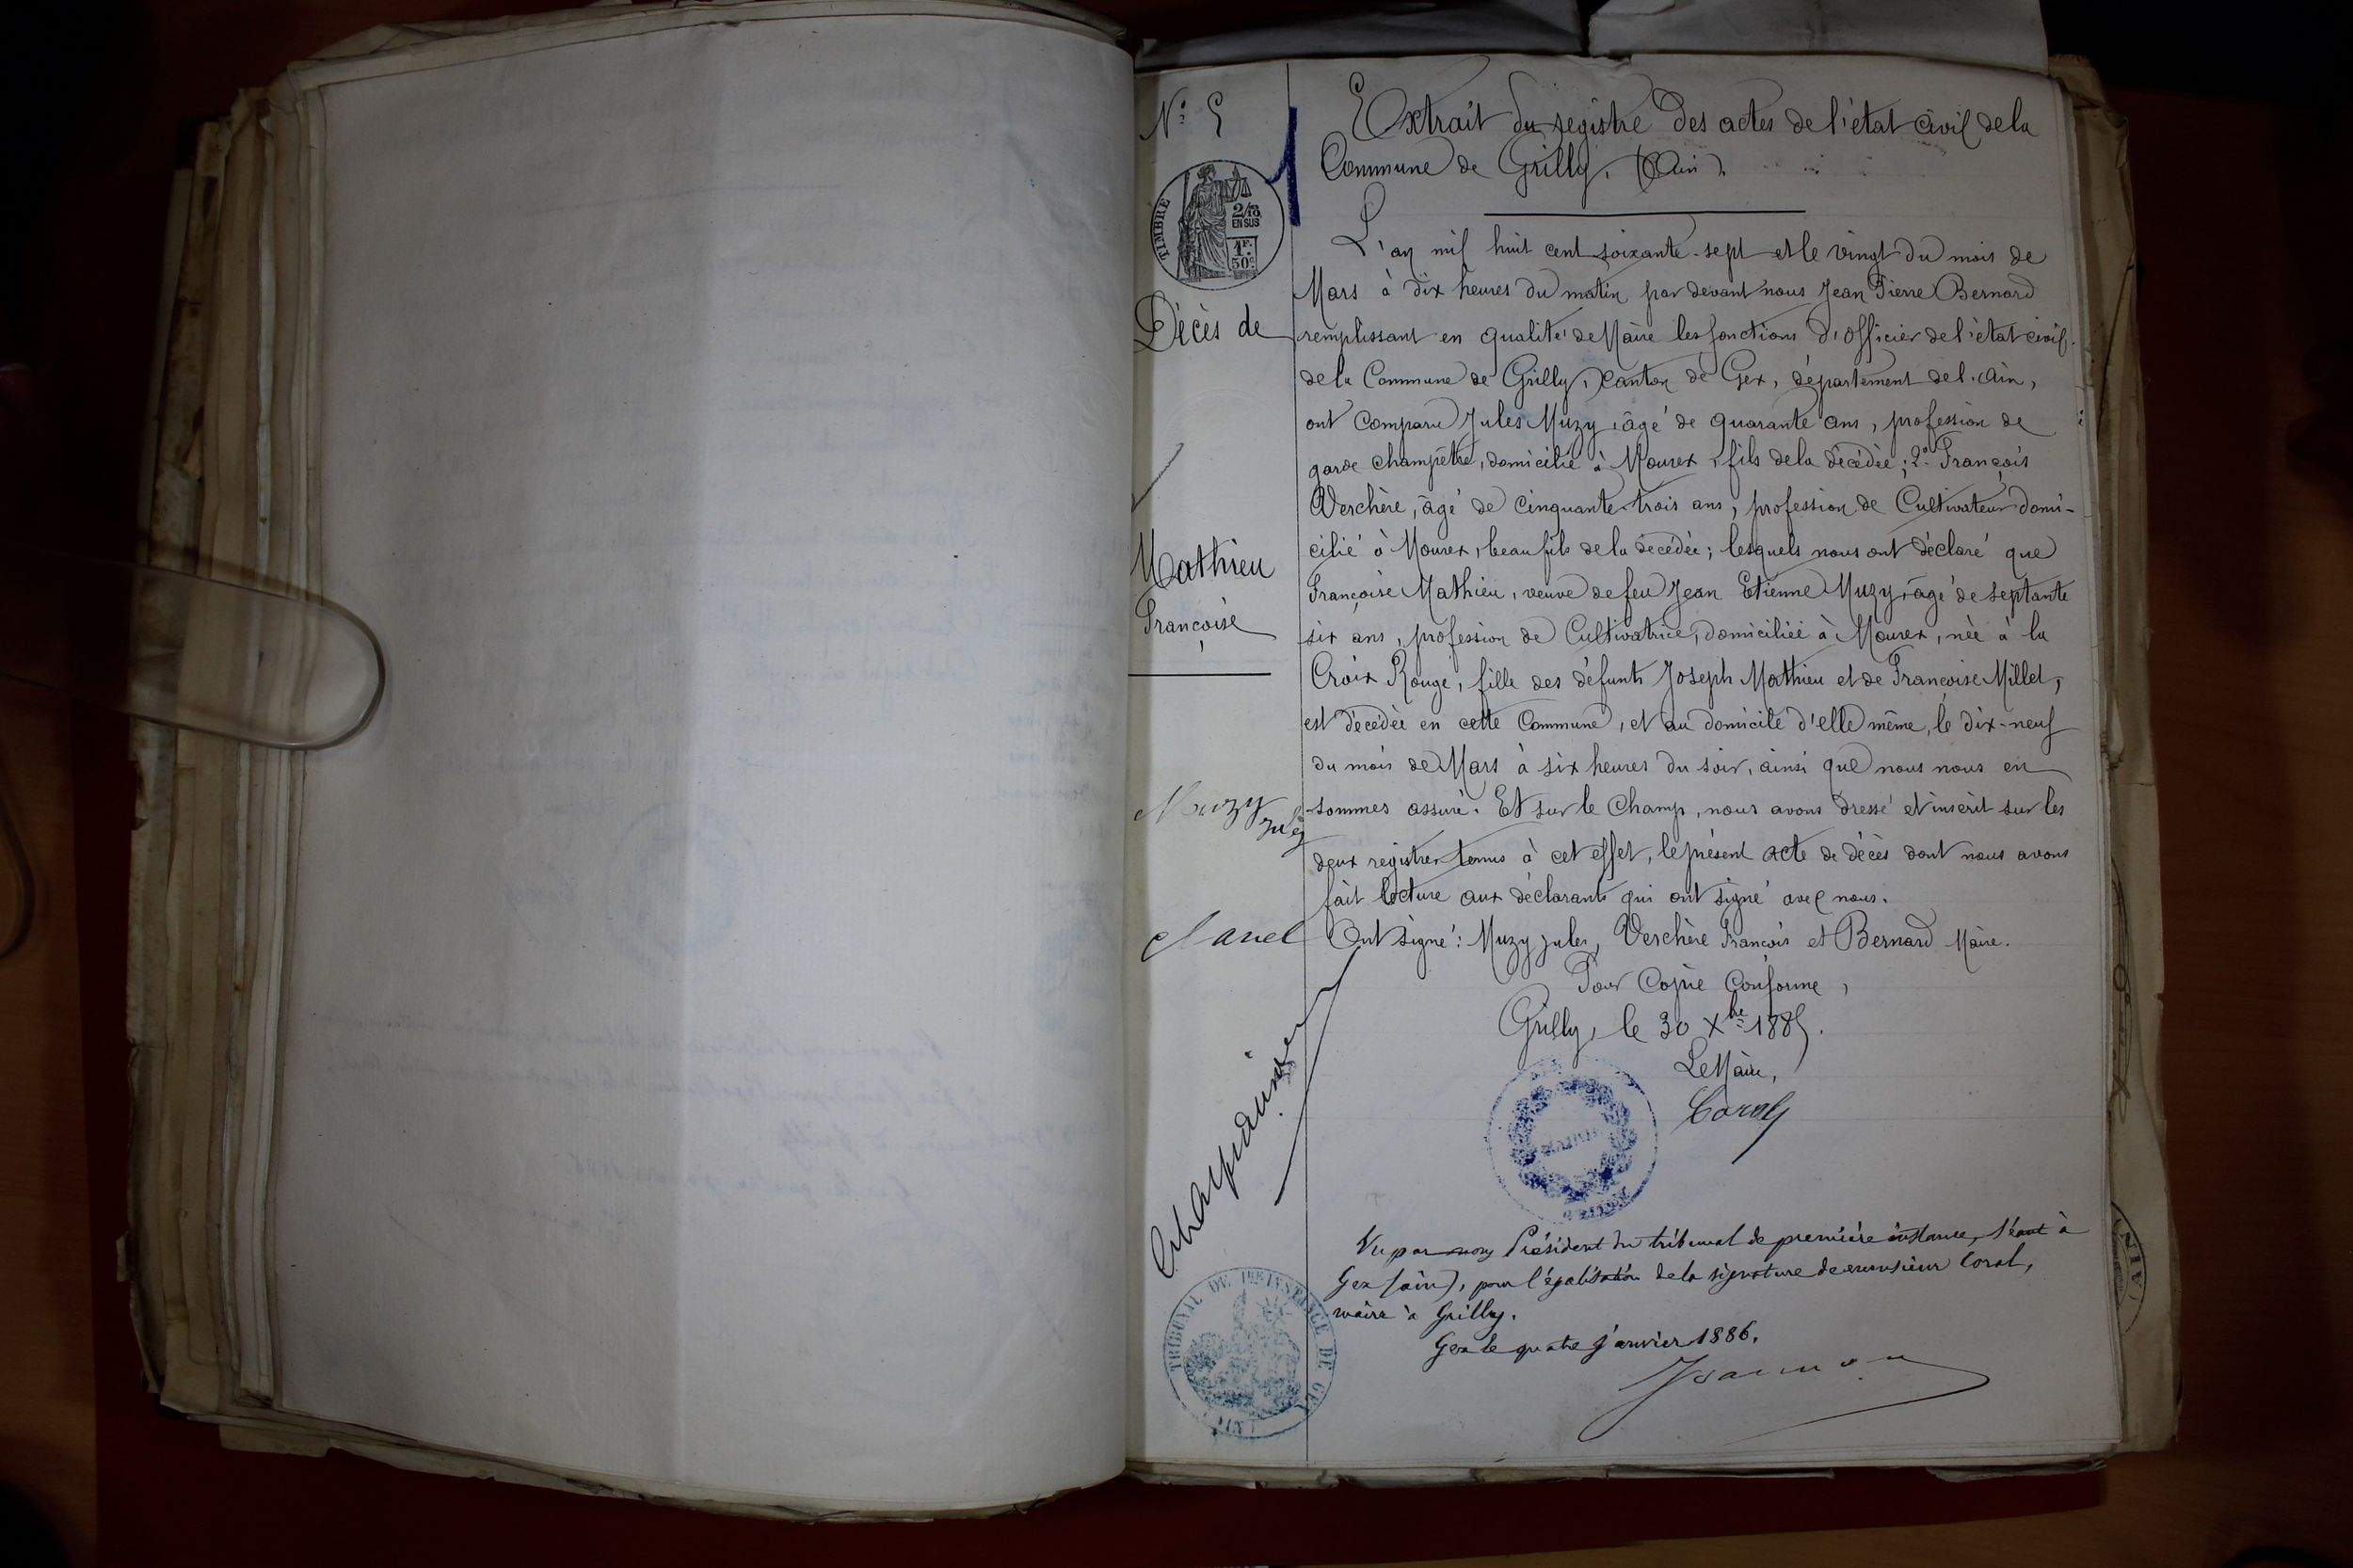 N° 5
TIMBRE
2/10
EN SUS
1F.
50c
Décès de
Mathieu
Françoise
Muzy
jules
Extrait du registre des actes de l'état civil de la
Commune de Grilly, (Ain).
L'an mil huit cent soixante-sept et le vingt du mois de
Mars à dix heures du matin par devant nous Jean Pierre Bernard
remplissant en qualité de Maire les fonctions d'officier de l'état civil
de la Commune de Grilly, Canton de Gex, département de l'Ain,
ont comparu Jules Muzy, âgé de quarante ans, profession de
garde champêtre, domicilié à Mourex, fils de la décédée; 2° François
Verchère, âgé de cinquante-trois ans, profession de Cultivateur domi-
cilié à Mourex, beau fils de la décédée; lesquels nous ont déclaré que
Françoise Mathieu, veuve de feu Jean Etienne Muzy, âgé de septante
six ans, profession de Cultivatrice, domiciliée à Mourex, née à la
Croix Rouge, fille des défunts Joseph Mathieu et de Françoise Millet,
est décédée en cette Commune, et au domicile d'elle même, le dix-neuf
du mois de Mars à six heures du soir, ainsi que nous nous en
sommes assuré. Et sur le Champ, nous avons dressé et inscrit sur les
deux registres tenus à cet effet, le présent acte de décès dont nous avons
fait lecture aux déclarants qui ont signé avec nous.
Ont signé: Muzy jules, Verchère François et Bernard Maire.
Pour Copie Conforme,
Grilly, le 30 Xbre 1885.
Le Maire,
Coral
MAIRIE
Vu par nous Président du tribunal de première instance, séant à
Gex (ain), pour légalisation de la signature de monsieur Coral,
maire à Grilly.
Gex le quatre janvier 1886.
TRIBUNAL DE 1RE INSTANCE DE GEX
(AIN)